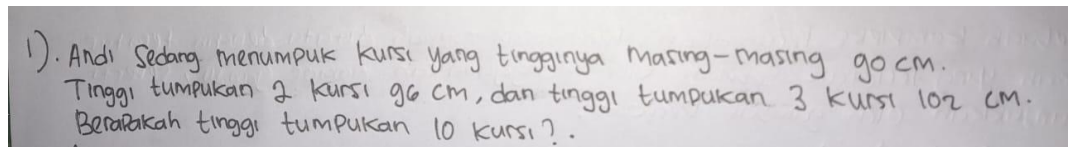 1). Andi Sedang menumpuk kursi yang tingginya masing-masing 90 cm.
Tinggi tumpukan 2 kursi 96 cm, dan tinggi tumpukan 3 kursi 102 cm.
Berapakah tinggi tumpukan 10 kursi?.